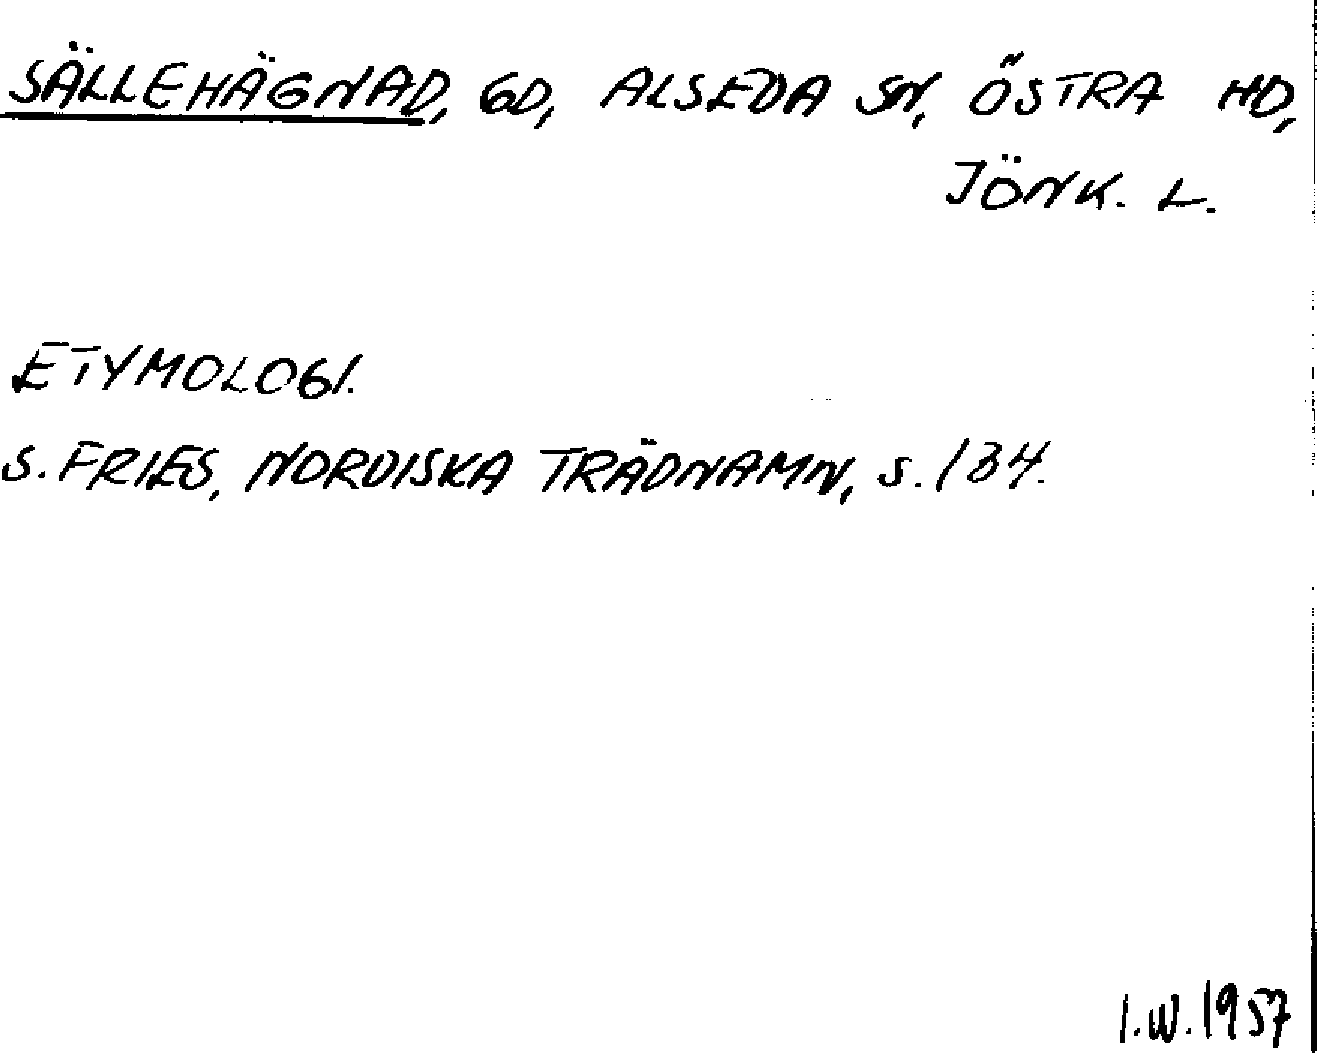 SÄLLEHÄGNAD, GD, ALSEDA SN, ÖSTRA HD,
JÖNK. L.
ETYMOLOGI.
S. FRIES, NORDISKA TRÄDNAMN, S. 134.
I.W. 1957